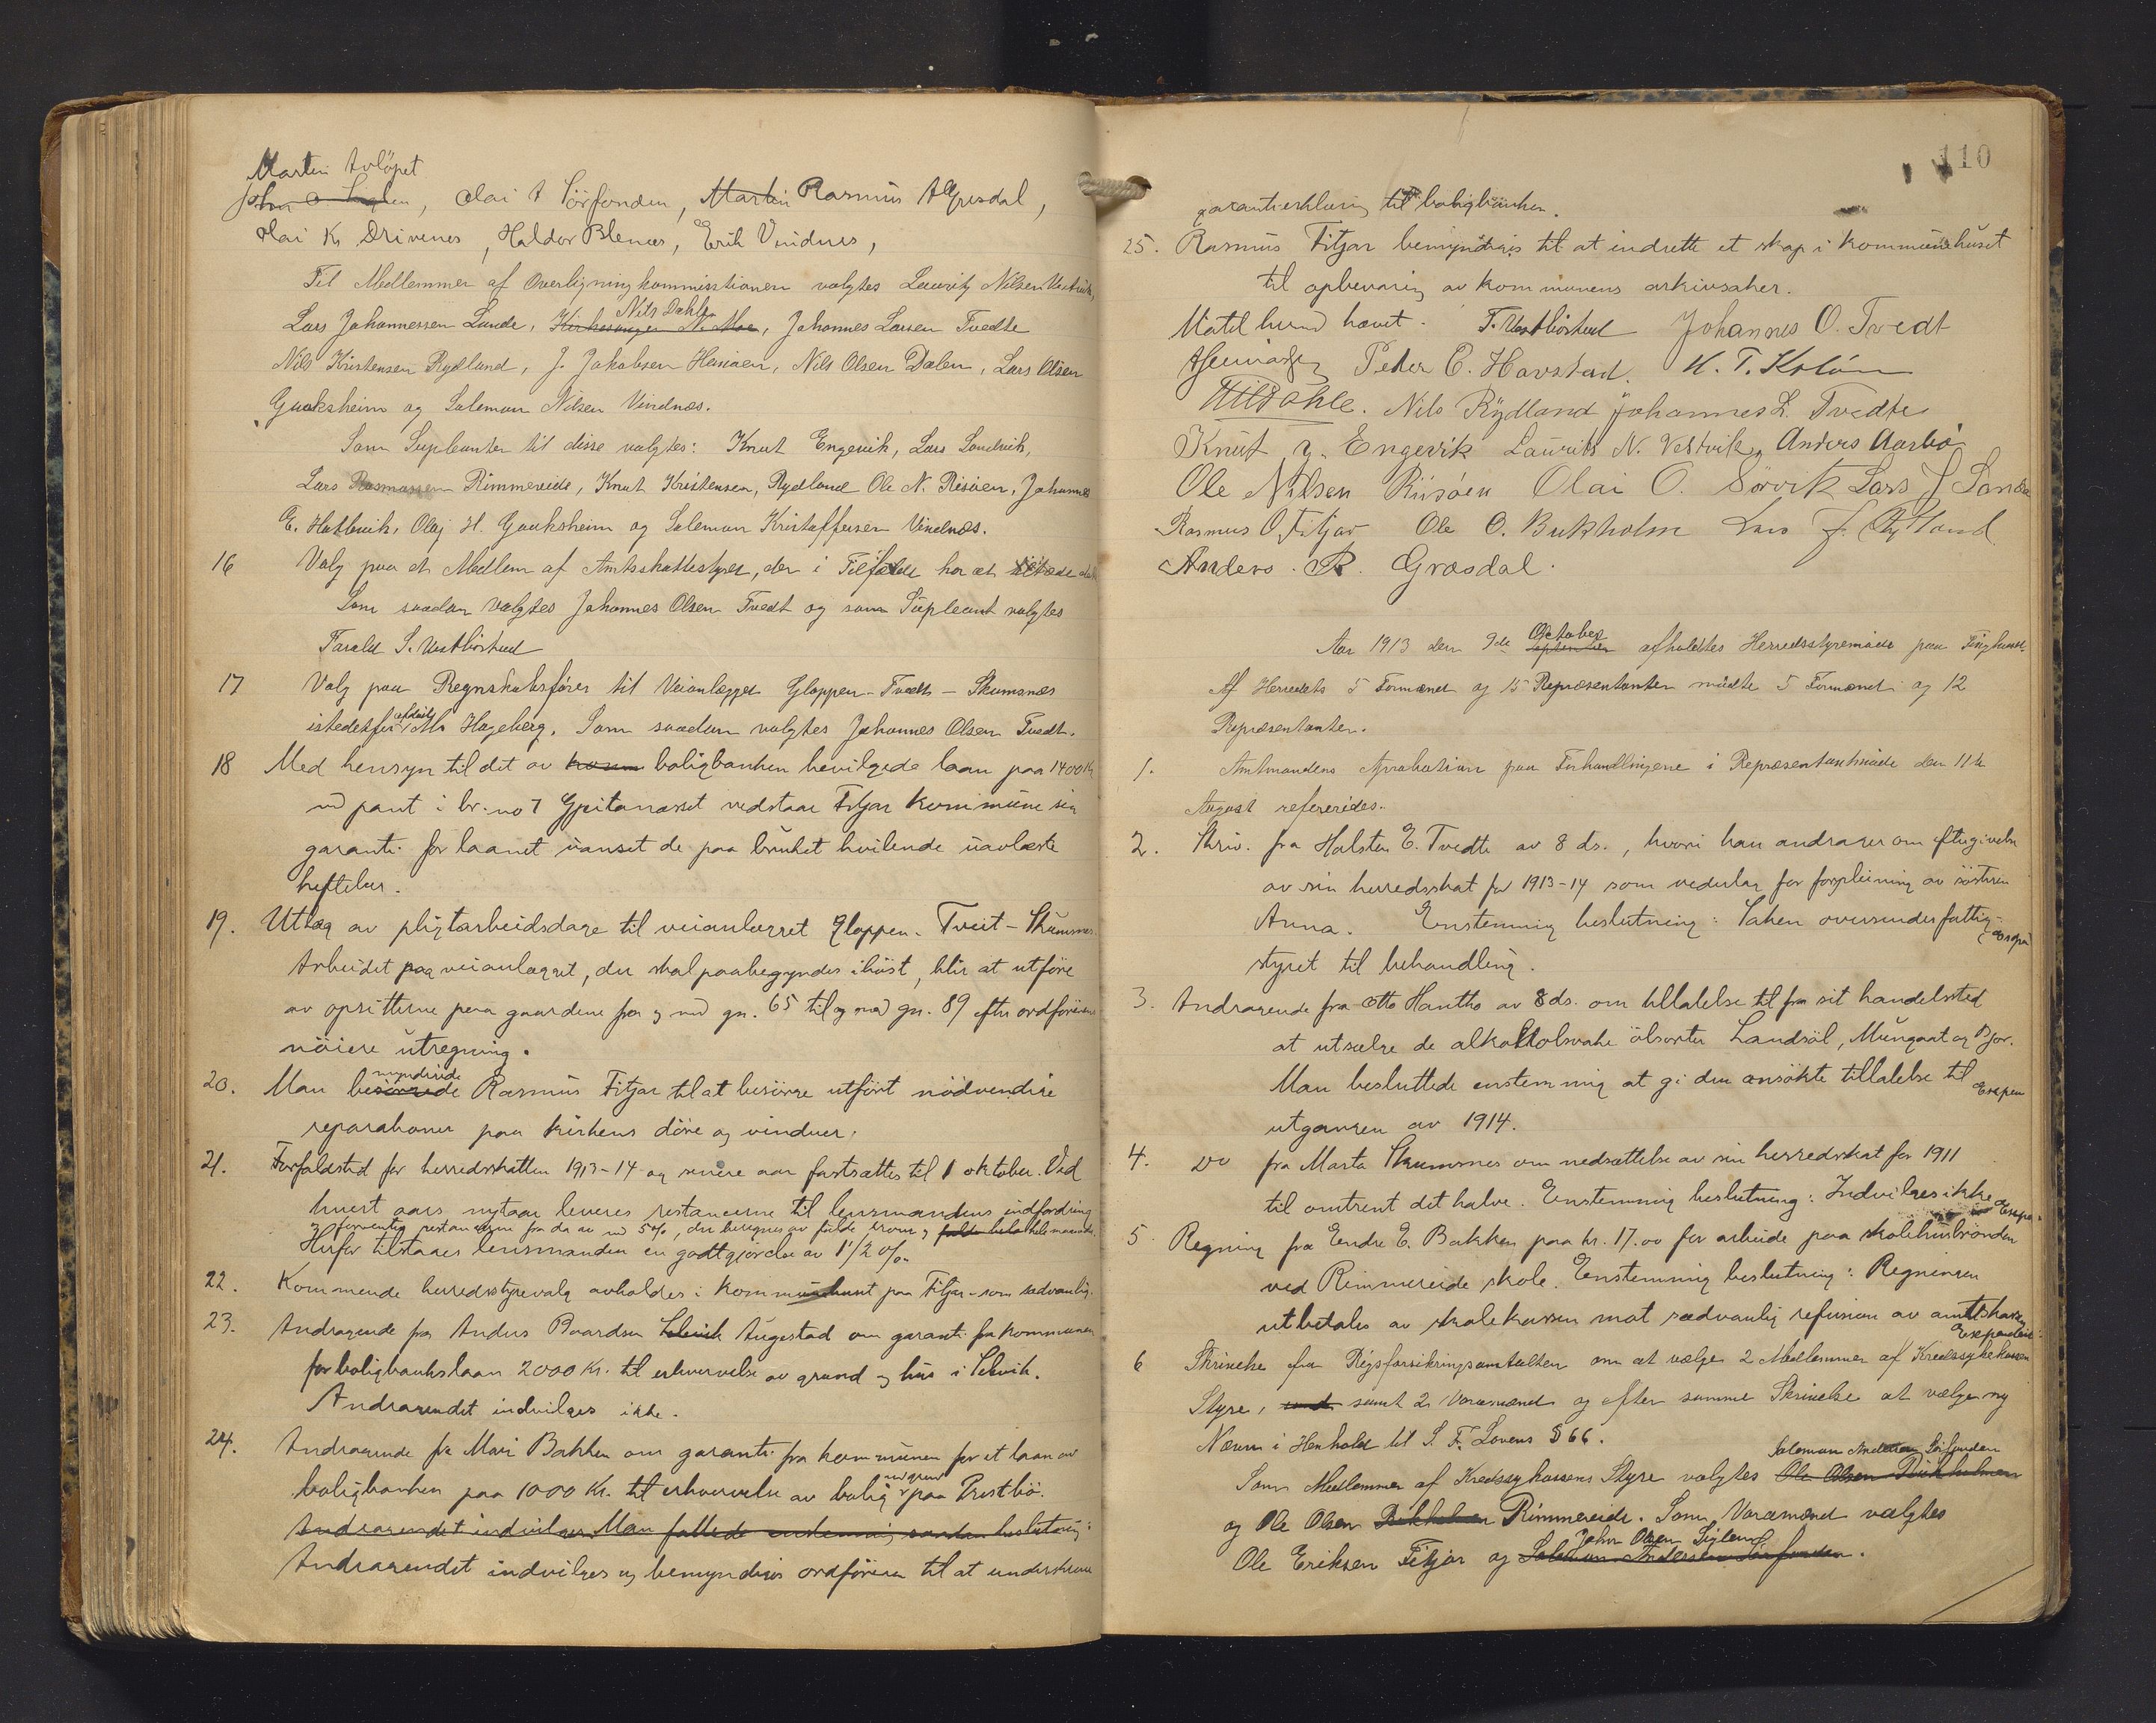 Martin Avlöpet
John O Siglen, Olai A Sörfonden, Martin Rasmus A Græsdal,
Olai K. Drivenes, Haldor Blenæs, Erik Vindnes,
Til Medlemmer af Overligningkommisstionen valgtes Lauritz Nilsen Vestvik,
Nils Dahle
Lars Johannessen Lunde, Kirkesanger N. Moe, Johannes Larsen Tvedte
Nils Kristensen Rydland, J. Jakobsen, Nils Olsen Dalen, Lars Olsen
Gaaksheim og Salemon Nilsen Vindnæs.
Som Supleanter til disse valgtes: Knut Engevik, Lars Sandvik,
Lars Rasmussen Rimmereide, Knut Kristensen, Rydland Ole N. Risöen, Johannes
E. Hatlevik, Olaj H. Gaaksheim og Salemon Kristoffersen Vindnæs.
16 Valg paa et Medlem af Amtsskattestyret, der i Tilfælde har at tiltræde
Som saadan valgtes Johannes Olsen Tvedt og som Supleant valgtes
Farald S. Vestböstad
17 Valg paa Regnskabsfører til Veianlægget Gloppen - Tvedt - Skumsnæs
istedetfor afdöde Hageberg. Som saadan valgtes Johannes Olsen Tvedt.
18 Med hensyn til det av kom boligbanken bevilgede laan paa 1400 Kr
md pant i br. no 7 Gjitanæsset vedstaar Fitjar kommune sin
garanti for laanet uanset de paa bruket hvilende uavlæste
heftelser.
19. Utlæg av pligtarbeidsdage til veianlægget Gloppen - Tveit - Skumsnes.
Arbeidet paa veianlægget, der skal paabegyndes ihöst, blir at utföre
av opsitterne paa gaardene fra og med gn. 65 til og med gn. 89 efter ordförerens
nöiere utregning.
myndigede
20. Man besörgede Rasmus Fitjar til at besörge utfört nödvendige
reparationer paa kirkens döre og vinduer.
21. Forfaldstid for herredskatten 1913-14 og senere aar fastsættes til 1 oktober. Ved
hvert aars nytaar leveres restancerne til lensmandens indfordring
og forrentes restancerne fra da av md 5%, der beregnes av fulde kroner og hele maaneder.
Herfor tilstaaes lensmanden en godtgjörelse av 1 1/2 %.
22. Kommende herredsstyrevalg avholdes i kommunehuset paa Fitjar som sædvanlig.
23. Andragende fra Anders Baardsen Selevik Augestad om garanti fra kommunen
for boligbankslaan 2000 Kr. til erhvervelse av grund og hus i Selvik.
Andragendet indvilges ikke.
24. Andragende fra Mari Bakken om garanti fra kommunen for et laan av
md grund
boligbanken paa 1000 Kr. til erhvervelse av bolig paa Prestbö.
Andragendet indvilges Man fattede enstemmig saadan beslutning:
Andragendet indvilges og bemyndiges ordföreren til at underskrive
110
garantierklæring til boligbanken.
25. Rasmus Fitjar bemyndiges til at indrette et skap i kommunehuset
til opbevaring av kommunens arkivsaker.
Mötet hermed hævet. F. Vestböstad Johannes O. Tvedt
Peder C. Havstad. K. T. Kolön
Nils Dahle. Nils Rydland Johannes L. Tvedte
Knut Engevik Laurits N. Vestvik, Anders Aarbö
Ole Nilsen Riisöen Olai O. Sörvik Lars J Sande
Rasmus O. Fitjar Ole O. Bukholm Lars J. Rydland
Anders R. Græsdal.
October
Aar 1913 den 9de September afholdtes Herredsstyremöde paa Tinghuset.
Af Herredets 5 Formænd og 15 Repræsentanter mödte 5 Formænd og 12
Repræsentanter.
1. Amtmandens Aprobation paa Forhandlingene i Repræsentantmöde den 11te
August refereredes.
2. Skriv. fra Halsten E. Tvedte av 8 ds., hvori han andrager om eftergivelse
av sin herredsskat for 1913-14 som vederlag for forpleining av søsteren
Anna. Enstemmig beslutning: Saken oversendes fattig-
styret til behandling.
3. Andragende fra Otto Hantho av 8 ds. om tillatelse til fra sit handelssted
at utsælge de alkoholsvake ölsorter Landsöl, Mungaat og Bjor.
Man besluttede enstemmig at gi den ansökte tillatelse til
Exspen
utgangen av 1914.
4. Do fra Marta Skumsnes om nedsættelse av sin herredskat for 1911
til omtrent det halve. Enstemmig beslutning: Indvilges ikke
Exspe.
5. Regning fra Endre E. Bakken paa kr. 17.00 for arbeide paa skolehusbrönden
ved Rimmereide skole. Enstemmig beslutning: Regningen
utbetales av skolekassen mot sædvanlig refusion av amtskassen
Exspederet
6 Skrivelse fra Rigsforsikringsanstalten om at vælge 2 Medlemmer af Kredssykekassen
Styre, samt 2 Varamænd og efter samme Skrivelse at vælge ny
Nævn i Henhold til S. F. Lovens § 66.
Salemon Andersen Sörfonden
Som Medlemmer af Kredssykekassens Styre valgtes Ole Olsen Bukholmen
og Ole Olsen Bukholmen Rimmereide. Som Varamænd valgtes
John Olsen Siglen
Ole Eriksen Fitjar og Salemon Andersen Sörfonden.